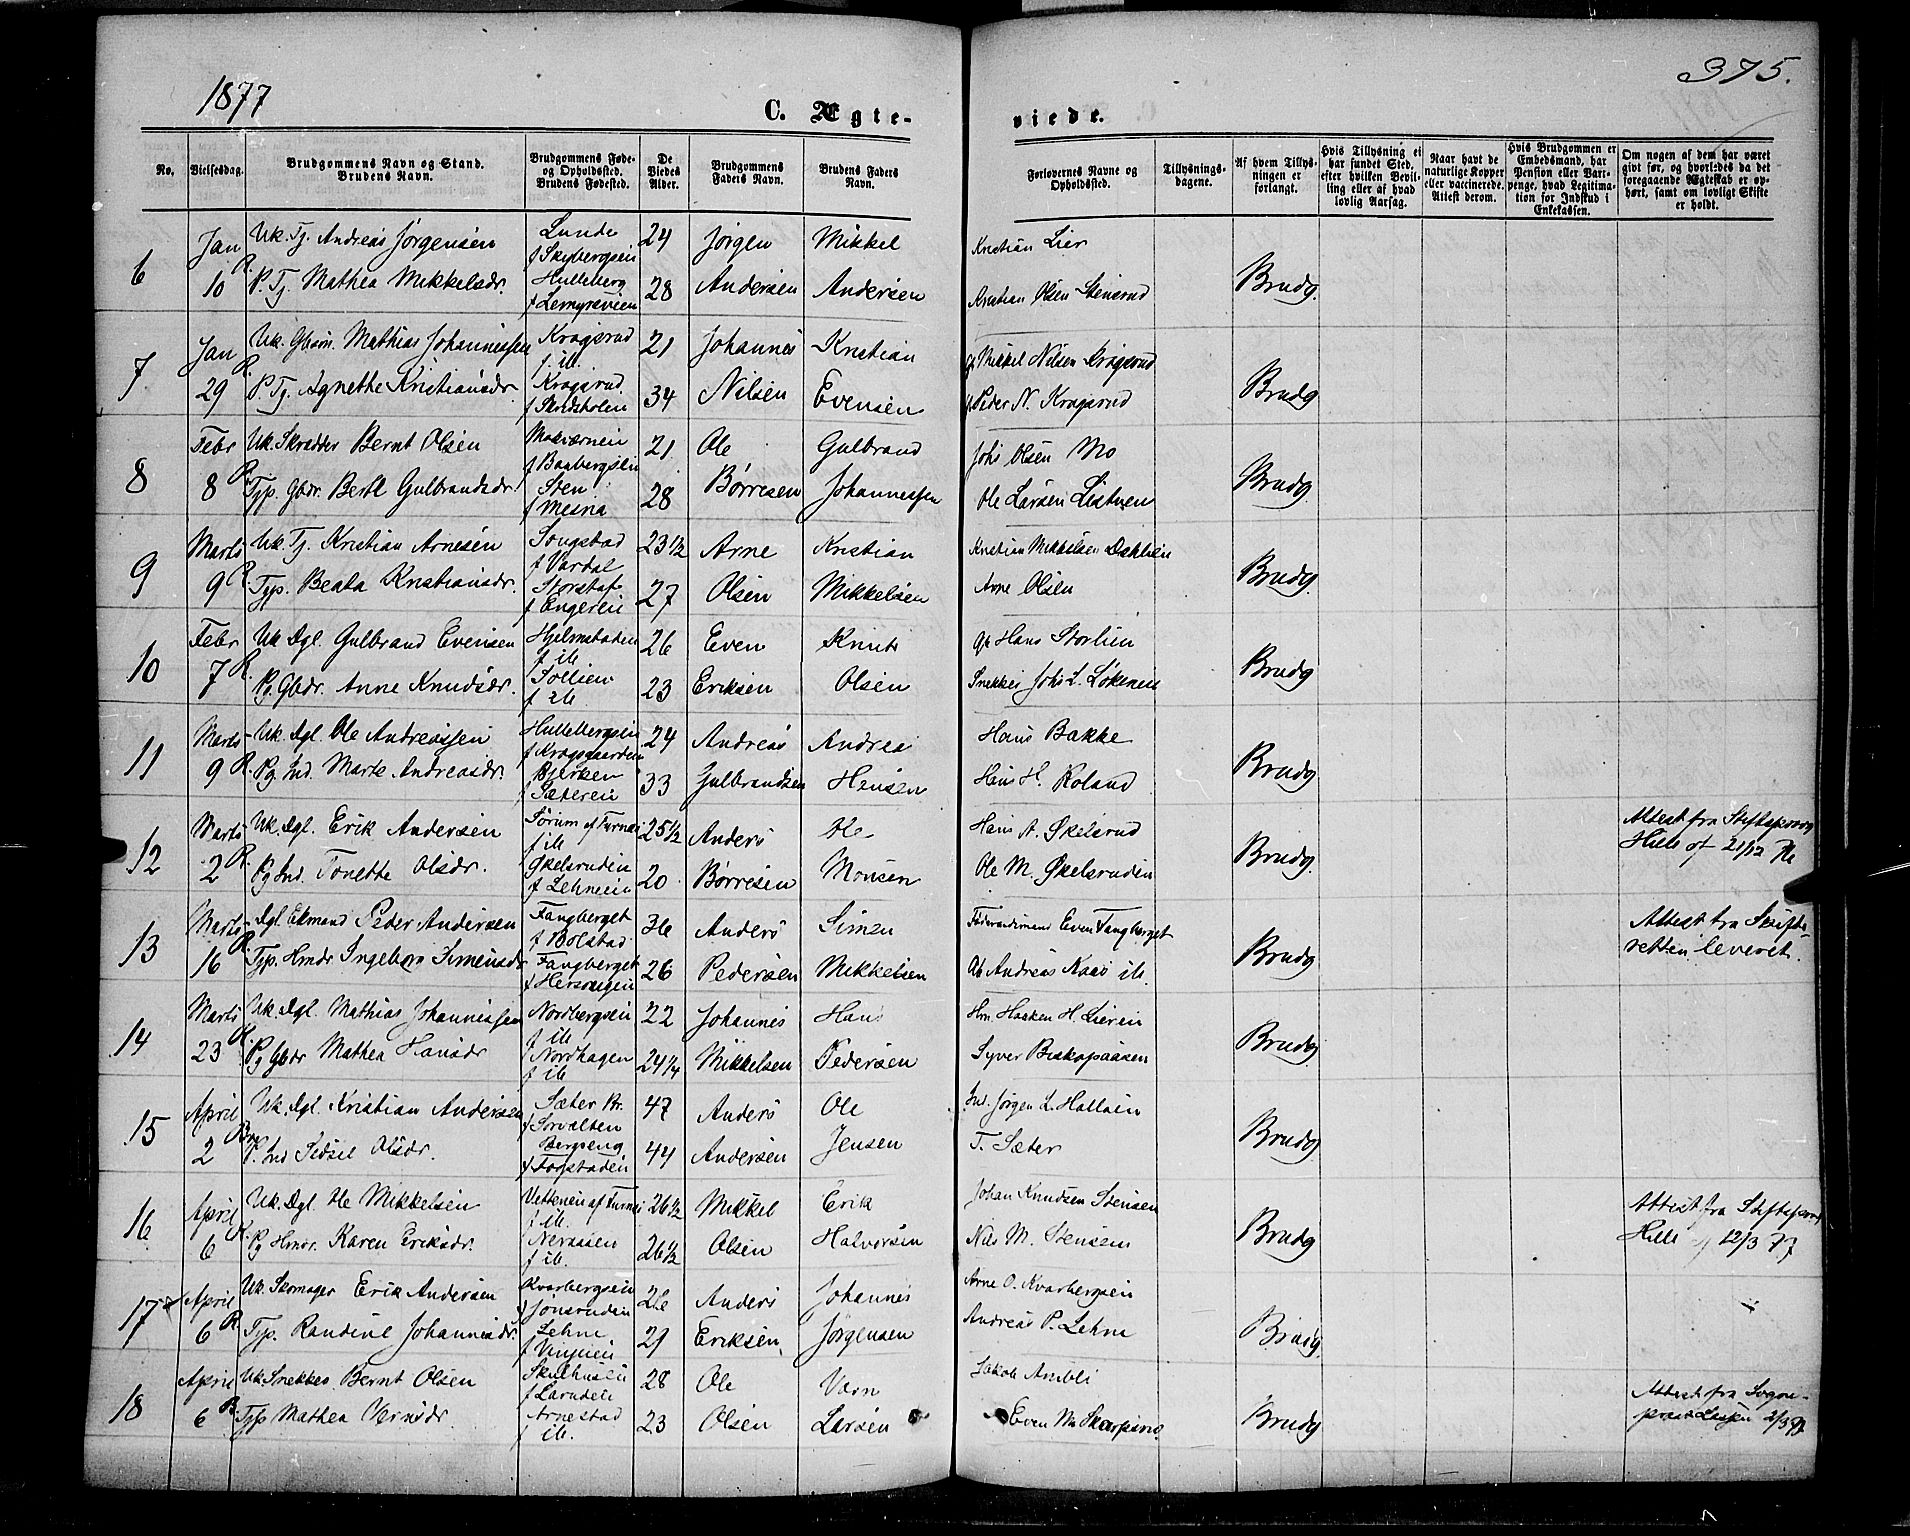 1877
375.
C. Ægte-
viede.
No.
Vielsesdag.
Brudgommens Navn og Stand.
Brudens Navn.
Brudgommens Føde-
og Opholdssted.
Brudens Fødested.
De
Viedes
Alder.
Brudgommens
Faders Navn.
Brudens Faders
Navn.
Forlovernes Navne og
Opholdssted.
Tillysnings-
dagene.
Af hvem Tillys-
ningen er
forlangt.
Hvis Tillysning ei
har fundet Sted,
efter hvilken Bevil-
ling eller af hvad
lovlig Aarsag.
Naar havt de
naturlige Kopper
eller vaccinerede.
Attest derom.
Hvis Brudgommen er
Embedsmand, har
Pension eller Vart-
penge, hvad Legitima-
tion for Indskud i
Enkekassen.
Om nogen af dem har været
givt før, og hvorledes da det
foregaaende Ægteskab er op-
hørt, samt om lovligt Skifte
er holdt.
6 Jan 10 R. Uk. Tj. Andreas Jørgensen Lunde f Skybergseie 24 Jørgen Andersen Mikkel Andersen Kristian Lier Brudg.
P. Tj. Mathea Mikkelsdr. Hulleberg f Lemyreveien 28 Kristian Olsen Stensrud
7 Jan 29 R. Uk. Gbsøn. Mathias Johannessen Kragsrud f. ib. 21 Johannes Nilsen Kristian Evensen Mikkel Nilsen Kragsrud Brudg
P. Tj. Agnethe Kristiansdr. Kragsrud 34 Peder N. Kragsrud
8 Febr 8 R. Uk. Skrædder Bernt Olsen 21 Ole Børresen Gulbrand Johannessen Johs Olsen Mo Brudg.
Typ. Gbdr. Berte Gulbrandsdr. Sten f Mesna 28 Ole Larsen Listuen
9 Marts 9 R. Uk. Tj. Kristian Arnesen Songstad f Vardal 23 1/2 Arne Olsen Kristian Mikkelsen Kristian Mikkelsen Dahlseie Brudg.
Typ. Beata Kristiansdr. f Engereie 27 Arne Olsen
10 Febr 7 R. Uk. Dgl. Gulbrand Evensen Hjelmstaden f ib 26 Even Eriksen Knut Olsen Hans Storlien Brudg
Pg. Gbdr. Anne Knudsdr. f ib 23 Snekker Johs L. Løkenen
11 Marts 9 R. Uk. Dgl. Ole Andreassen Hullebergseie 24 Andreas Gulbrandsen Andreas Hensen Hans Bakke Brudg
Pg. Ind. Marte Andreasdr. Bjerken f Sætereie 33 Hans H. Roland
12 Marts 2 R. Uk. Dgl. Erik Andersen Sørum af Furnes f ib 25 1/2 Anders Børresen Ole Monsen Hans A. Økelsrud Brudg Attest fra Stiftsprovst
Hille af 21/12 76
Pg Ind. Tonette Olsdr. Økelsrudeie f Lehneeie 20 Ole M. Økelsruden
13 Marts 16 R. Dgl. Ekmand Peder Andersen Fangberget f Bolstad 36 Anders Pedersen Simen Mikkelsen Føderaadsmand Even Fangberget Brudg Attest fra Skifte-
retten leveret.
Typ. Hmdr Ingeborg Simensdr Fangberget 26 Andreas Kaas ib.
14 Marts 23 R. Uk. Dgl. Mathias Johannessen Nordbergseie f ib 22 Johannes Mikkelsen Hans Pedersen Hm. Haaken H. Liereie Brudg
Pg Gbdr Mathea Hansdr Nordhagen f ib 24 1/4 Syver Biskopaasen
15 April 2 Uk. Dgl. Kristian Andersen Sæter Br. f Sorvalten 47 Anders Andersen Ole Jensen Ind. Jørgen L. Hallseie Brudg
P. Ind Sidsel Olsdr. Bergseng 44 T. Sæter
16 April 6 R. Uk. Dgl. Ole Mikkelsen Vetteneie af Furnes f ib. 26 1/2 Mikkel Olsen Erik Halvorsen Johan Knudsen Stensen Brudg Attest fra Stiftsprovst
Hille 12/3 77
Pg Hmdr. Karen Eriksdr. f ib. 26 1/2 Nils M. Stensen
17 April 6 R Uk. Skomager Erik Andersen Kvarbergseie f Jønsruden 26 Anders Eriksen Johannes Jørgensen Arne O. Kvarbergseie Brudg.
Typ. Randine Johannesdr. Lehne 29 Andreas P. Lehne
18 April 6 R Uk. Snekker Bernt Olsen 28 Ole Olsen Vern Larsen Jakob Ambli Brudg Attest fra Sogne-
præst 2/3 77
Typ Mathea Vernsdr. Arnestad f ib. 23 Even M. Skarpsno